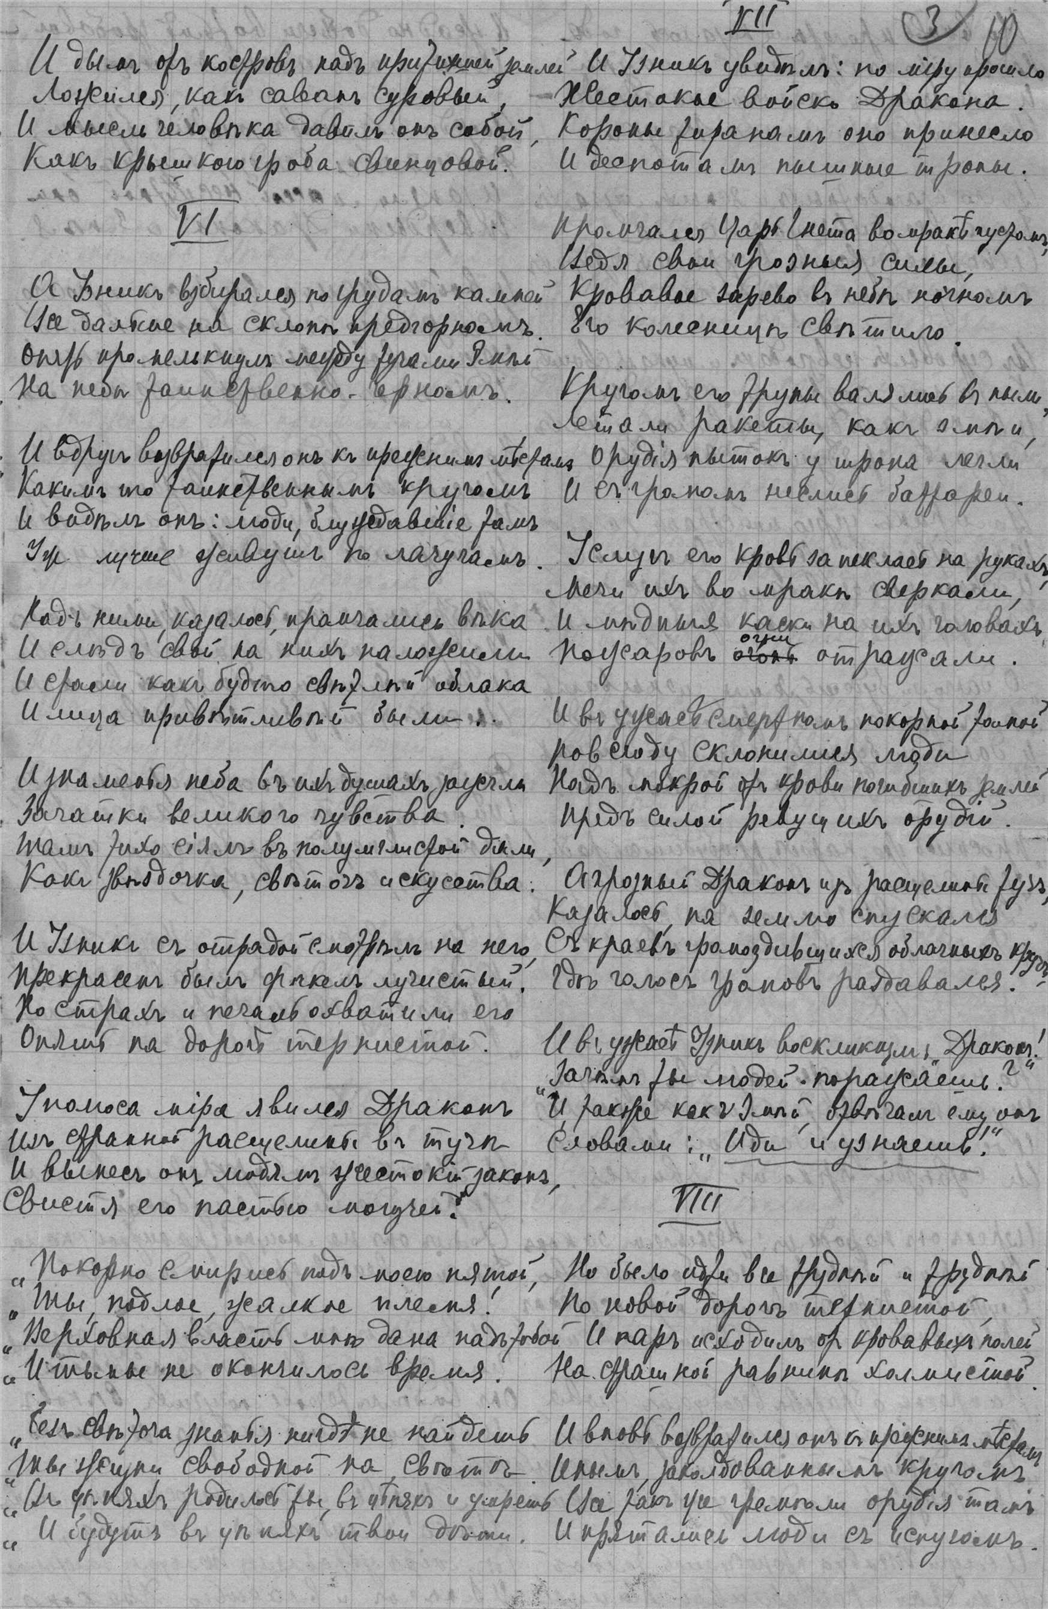 3
60
И дымъ отъ костровъ надъ притихшей землей
Ложился, какъ саванъ суровый,
И мысль человѣка давилъ онъ собой,
Какъ крышкою гроба свинцовой.
VI
А Узникъ взбирался по грудамъ камней
Все далѣе на склонѣ предгорномъ.
Опять промелькнулъ между тучами Змѣй
На небѣ таинственно-черномъ.
И вдругъ возвратился онъ къ прежнимъ мѣстамъ
Какимъ то таинственнымъ кругомъ
И видѣлъ онъ: люди, блуждавшіе тамъ
Ужъ лучше живутъ по лачугамъ.
Надъ ними, казалось, промчались вѣка
И слѣдъ свой на нихъ наложили
И стали какъ будто свѣтлѣй облака
И лица привѣтливѣй были.
И знаменья неба въ ихъ душахъ зажгли
Зачатки великаго чувства.
Тамъ тихо сіялъ въ полумглистой дали,
Какъ звѣздочка, свѣточъ искусства.
И Узникъ съ отрадой смотрѣлъ на него,
Прекрасенъ былъ факелъ лучистый.
Но страхъ и печаль охватили его
Опять на дорогѣ тернистой.
У полюса міра явился Драконъ
Изъ странной расщелины въ тучѣ
И вынесъ онъ людямъ жестокій законъ,
Свистя его пастью могучей:
„Покорно смирись подъ моею пятой,
„Ты, подлое, жалкое племя!
„Верховная власть мнѣ дана надъ тобой
„И тьмы не окончилось время.
„Безъ свѣточа знанья нигдѣ не найдешь
„Ты жизни свободной на свѣтѣ.
„Въ цѣпяхъ родилось ты, въ цѣпяхъ и умрешь
„И будутъ въ цѣпяхъ твои дѣти.
VII
И Узникъ увидѣлъ: по міру прошло
Жестокое войско Дракона.
Короны тиранамъ оно принесло
И деспотамъ пышные троны.
Промчался Царь Гнета во мракѣ густомъ,
Ведя свои грозныя силы,
Кровавое зарево въ небѣ ночномъ
Его колесницѣ свѣтило.
Кругомъ его трупы валялись въ пыли,
Летали ракеты, какъ змѣи,
Орудія пытокъ у трона легли
И съ громомъ неслись баттареи.
У слугъ его кровь запеклась на рукахъ,
Мечи ихъ во мракѣ сверкали,
И мѣдныя каски на ихъ головахъ
Пожаровъ огни отражали.
И въ ужасѣ смертномъ покорной толпой
Повсюду склонилися люди
Надъ мокрой отъ крови погибшихъ землей
Предъ силой ревущихъ орудій.
А грозный Драконъ изъ расщелины тучъ,
Казалось, на землю спускался
Съ краевъ громоздившихся облачныхъ кручъ,
Гдѣ голосъ громовъ раздавался.
И въ ужасѣ Узникъ воскликнулъ: „Драконъ!
„Зачѣмъ ты людей поражаешь?“
И также какъ Змѣй, отвѣчалъ ему онъ
Словами: „Иди и узнаешь!“
VIII
Но было идти все труднѣй и труднѣй
По новой дорогѣ тернистой,
И паръ исходилъ отъ кровавыхъ полей
На страшной равнинѣ холмистой.
И вновь возвратился онъ къ прежнимъ мѣстамъ
Инымъ, заколдованнымъ кругомъ
Все такъ же гремѣли орудія тамъ
И прятались люди съ испугомъ.